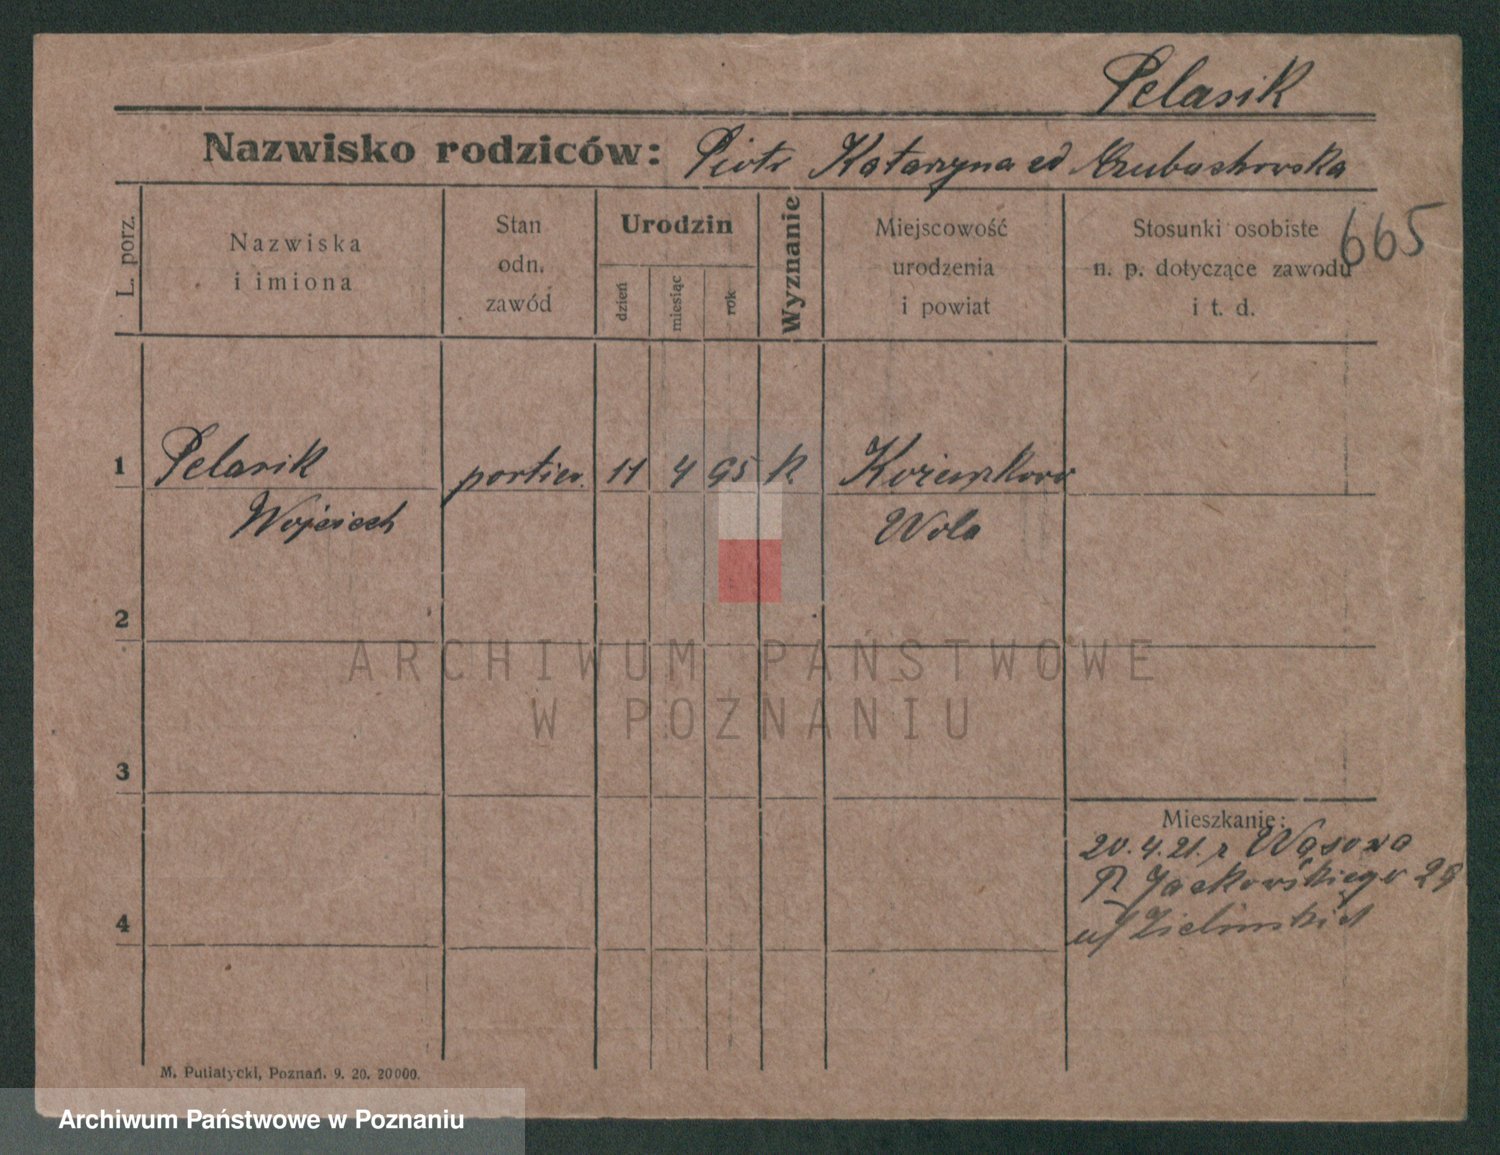 Pelasik
Nazwisko rodziców: Piotr Katarzyna
665
L. porz.
Nazwiska
i imiona
Stan
odn.
zawód
Urodzin
dzień
miesiąc
rok
Wyznanie
Miejscowość
urodzenia
i powiat
Stosunki osobiste
n. p. dotyczące zawodu
i t. d.
1 Pelasik portier. 11 4 95 k.
Wojciech Wola
2
ARCHIWUM PAŃSTWOWE
W POZNANIU
3
Mieszkanie:
20.4.21. z Wąsowa
Jackowskiego 28
4
M. Putiatycki, Poznań. 9. 20. 20000.
Archiwum Państwowe w Poznaniu